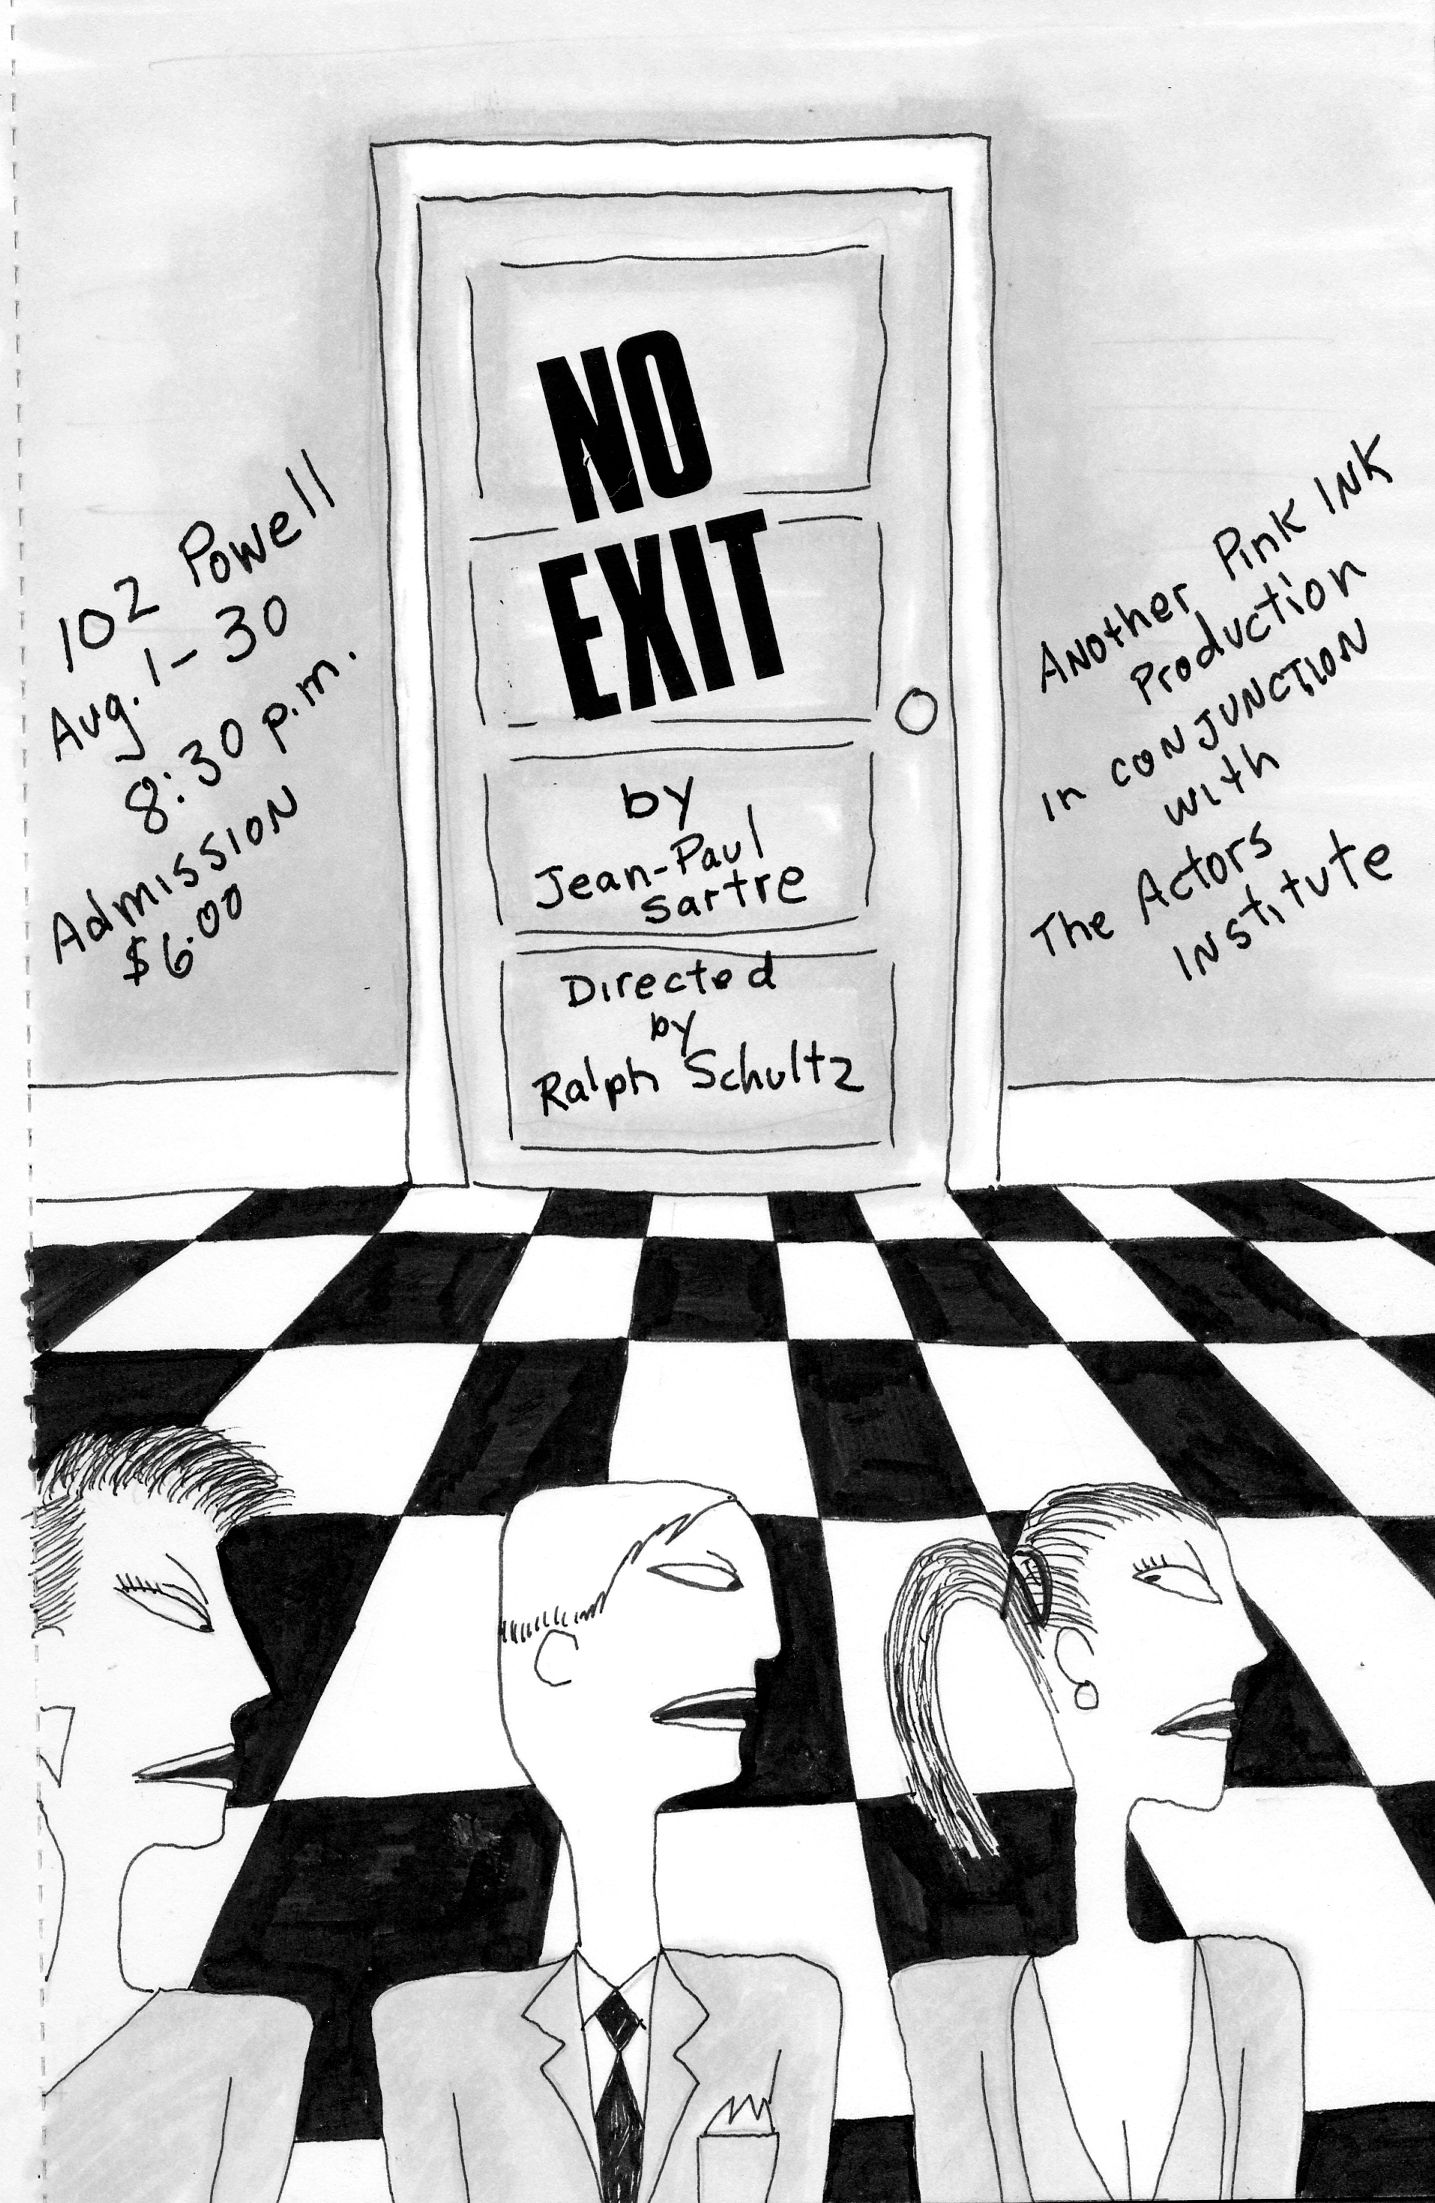 NO
EXIT
by
Jean-Paul
Sartre
Directed
by
Ralph Schultz
102 Powell
Aug. 1-30
8:30 p.m.
Admission
$6.00
Another Pink Ink
Production
in conjunction
with
The Actors
Institute